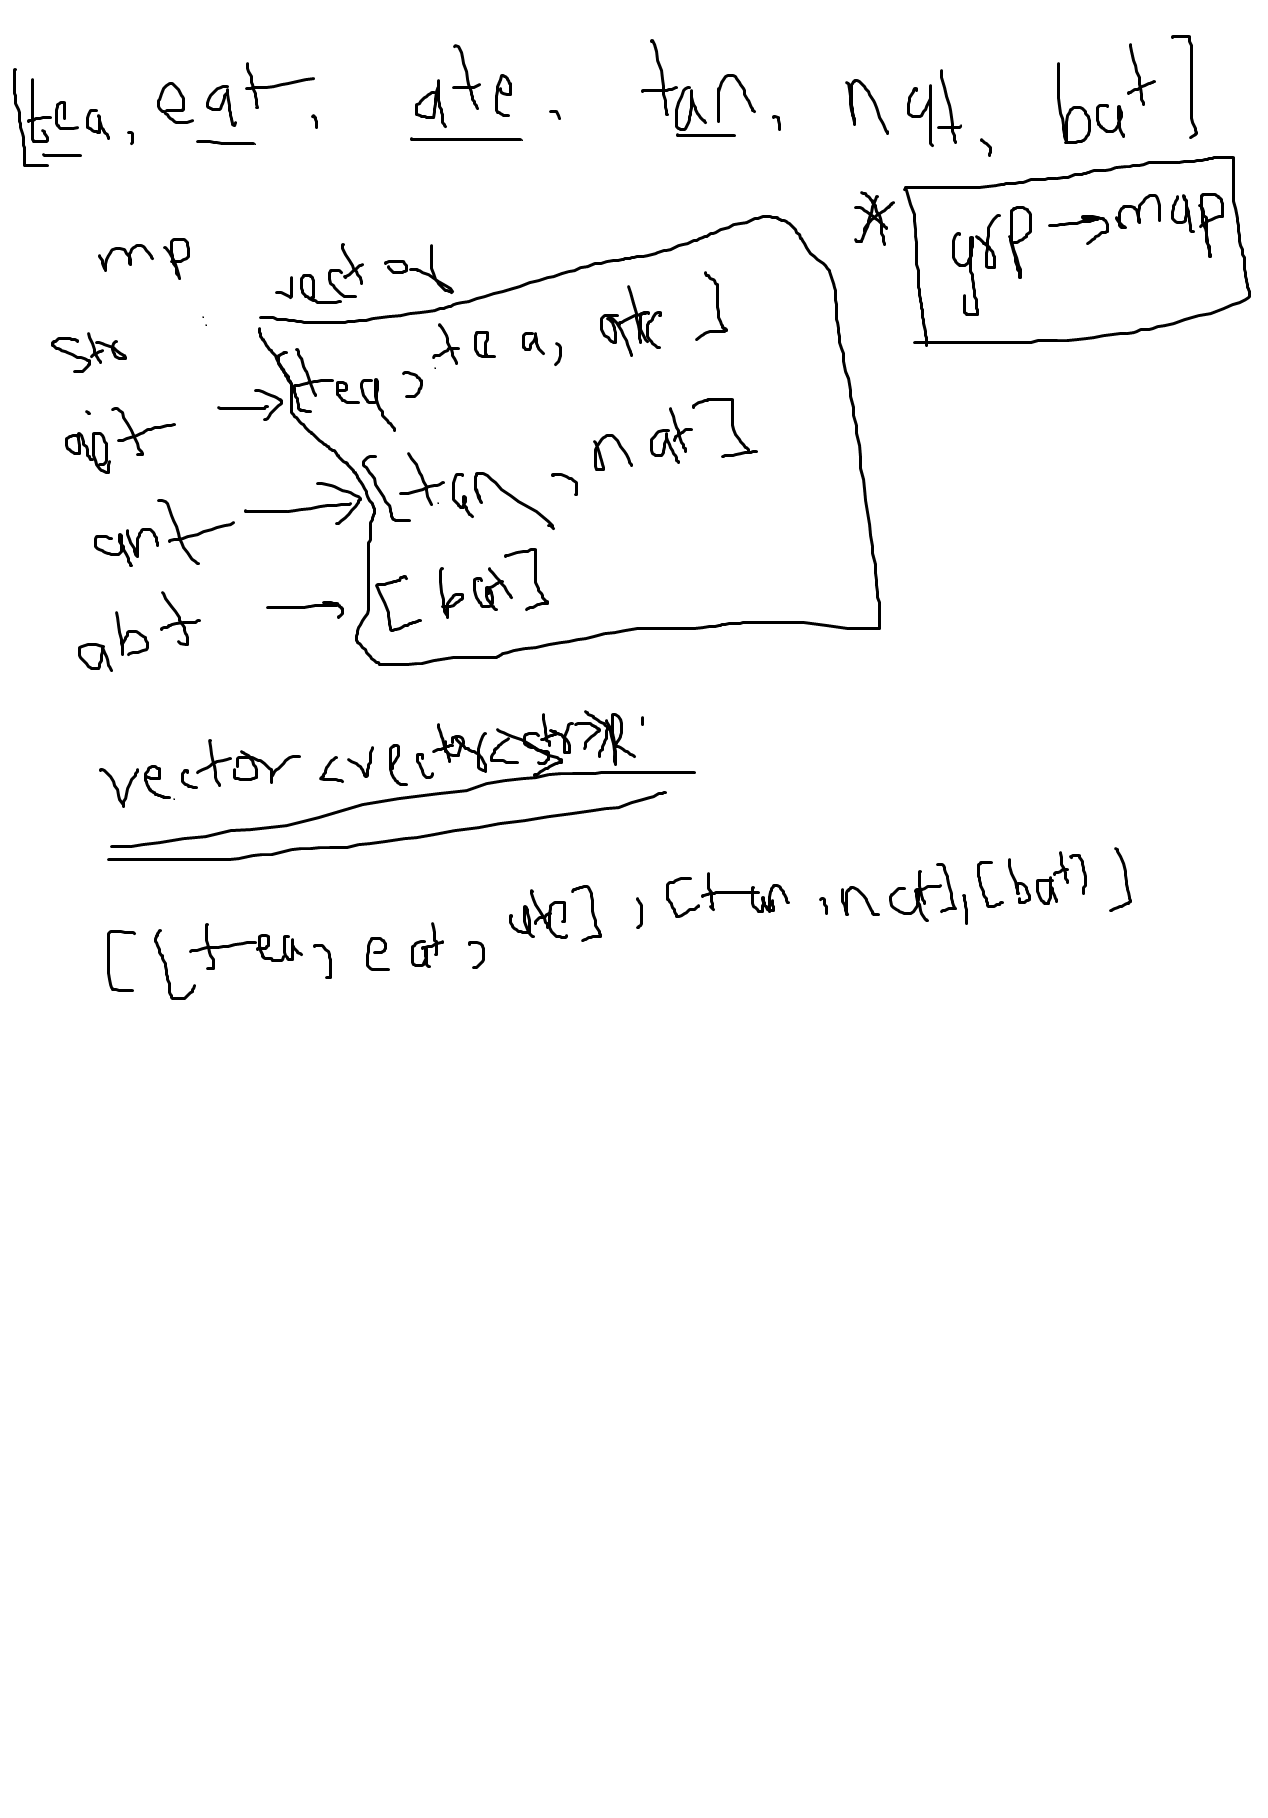 [tea, eat, ate, tan, nat, bat]
* grp → map
mp vector
str
aet → [tea, tea, ate]
ant → [tan, nat]
abt → [bat]
vector<vector<str>>R
[[tea, eat, ate], [tan, nat], [bat]]